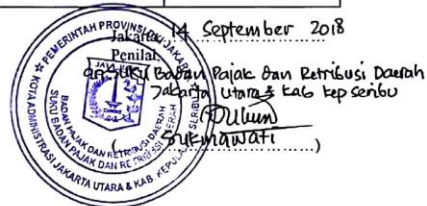 Jakarta, 14 September 2018
Penilai
an Suku Badan Pajak dan Retribusi Daerah
Jakarta Utara & Kab Kep Seribu
( Sukmawati )
PEMERINTAH PROVINSI DKI JAKARTA
KOTA ADMINISTRASI JAKARTA UTARA & KAB. KEPULAUAN SERIBU
SUKU BADAN PAJAK DAN RETRIBUSI DAERAH
BADAN PAJAK DAN RETRIBUSI DAERAH
JAYA RAYA